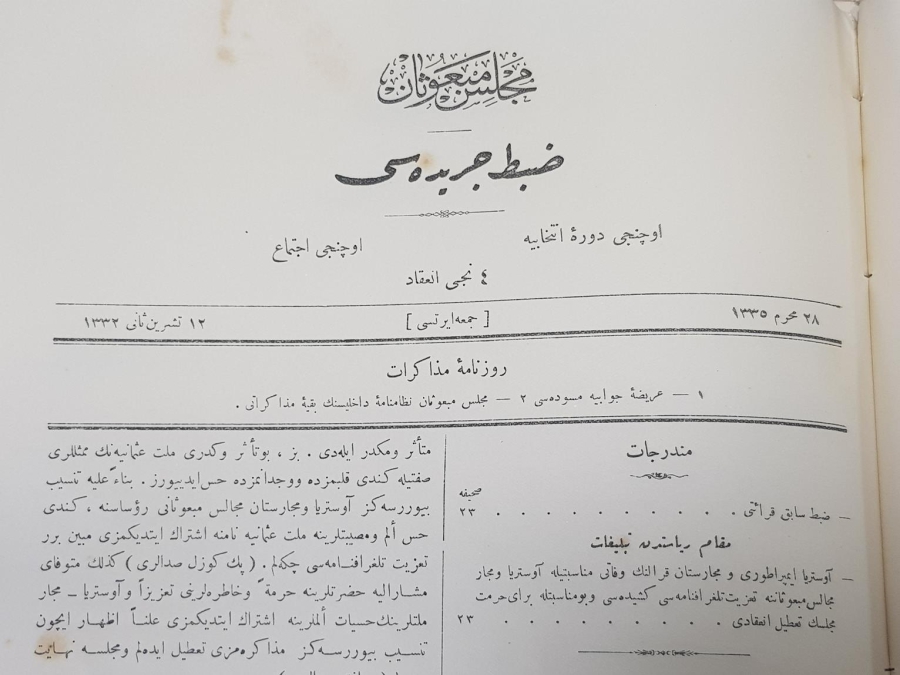 مجلس مبعوثان
ضبط جريده‌سی
اوچنجی دورهٔ انتخابيه
اوچنجی اجتماع
٤ نجی انعقاد
٢٨ محرم ١٣٣٥
[ جمعه‌ايرتسی ]
١٢ تشرين‌ثانی ١٣٣٢
روزنامهٔ مذاكرات
١ — عريضهٔ جوابيه مسوده‌سی ٢ — مجلس مبعوثان نظامنامهٔ داخليسنك بقيهٔ مذاكراتی .
مندرجات
صحيفه
— ضبط سابق قرائتی . . . . . . . . . . ٢٣
مقام رياستدن تبليغات
— آوستريا ايمپراطوری و مجارستان قرالنك وفاتی مناسبتيله آوستريا ومجار
مجالس مبعوثاننه تعزيت تلغرافنامه‌سی كشيده‌سی و بومناسبتله برای حرمت
مجلسك تعطيل انعقادی . . . . . . . . ٢٣
متأثر ومكدر ايله‌دی . بز ، بوتأثر وكدری ملت عثمانيه‌نك ممثللری
صفتيله كندی قلبمزده ووجدانمزده حس‌ايدييورز . بناءً عليه تنسيب
بيوررسه‌كز آوستريا ومجارستان مجالس مبعوثانی رؤساسنه ، كندی
حس ألم ومصيبتلرينه ملت عثمانيه نامنه اشتراك ايتديكمزی مبين برر
تعزيت تلغرافنامه‌سی چكه‌لم . (پك كوزل صدالری) كذلك متوفای
مشاراليه حضرتلرينه حرمةً وخاطره‌لرينی تعزيزاً وآوستريا ـ مجار
ملتلرينك حسيات ألملرينه اشتراك ايتديكمزی علناً اظهار ايچون
تنسيب بيوررسه‌كز مذاكره‌مزی تعطيل ايده‌لم ومجلسه نهايت